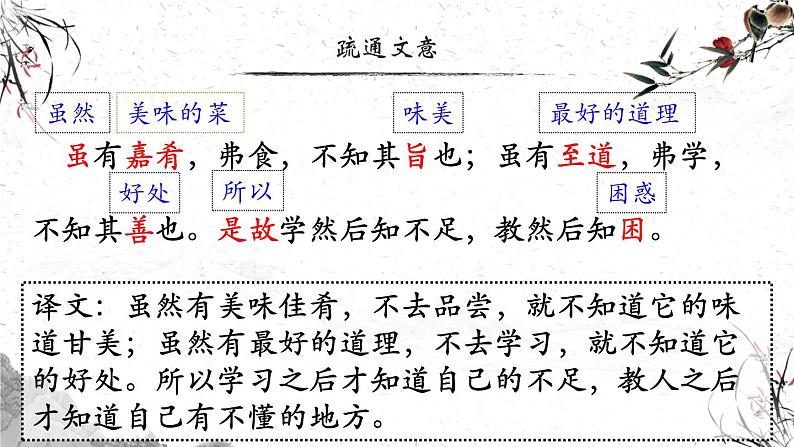 疏通文意
虽然 美味的菜 味美 最好的道理
虽有嘉肴，弗食，不知其旨也；虽有至道，弗学，
好处 所以 困惑
不知其善也。是故学然后知不足，教然后知困。
译文：虽然有美味佳肴，不去品尝，就不知道它的味
道甘美；虽然有最好的道理，不去学习，就不知道它
的好处。所以学习之后才知道自己的不足，教人之后
才知道自己有不懂的地方。